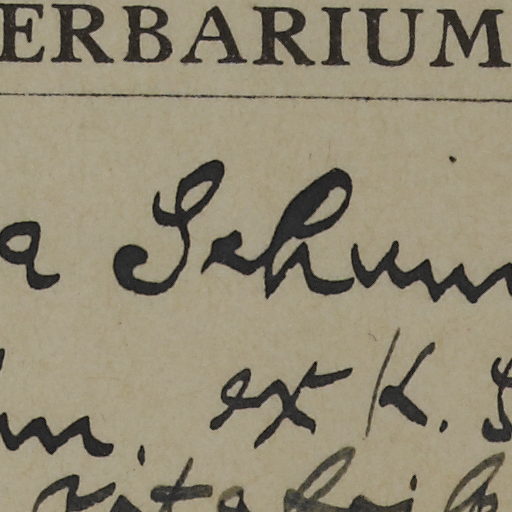 ERBARIUM
a Schum
m. ex K. S